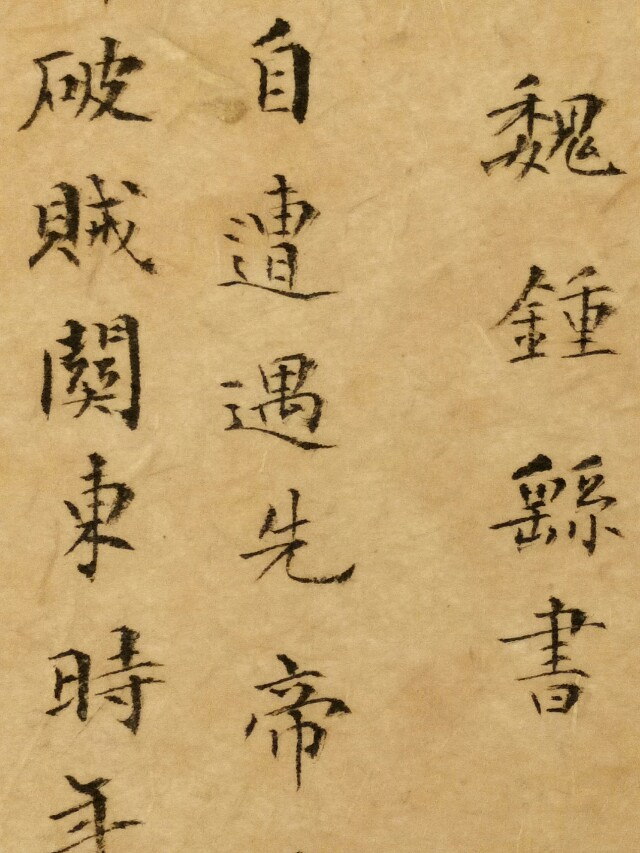 魏鍾繇書
自遭遇先帝
破賊關東時年